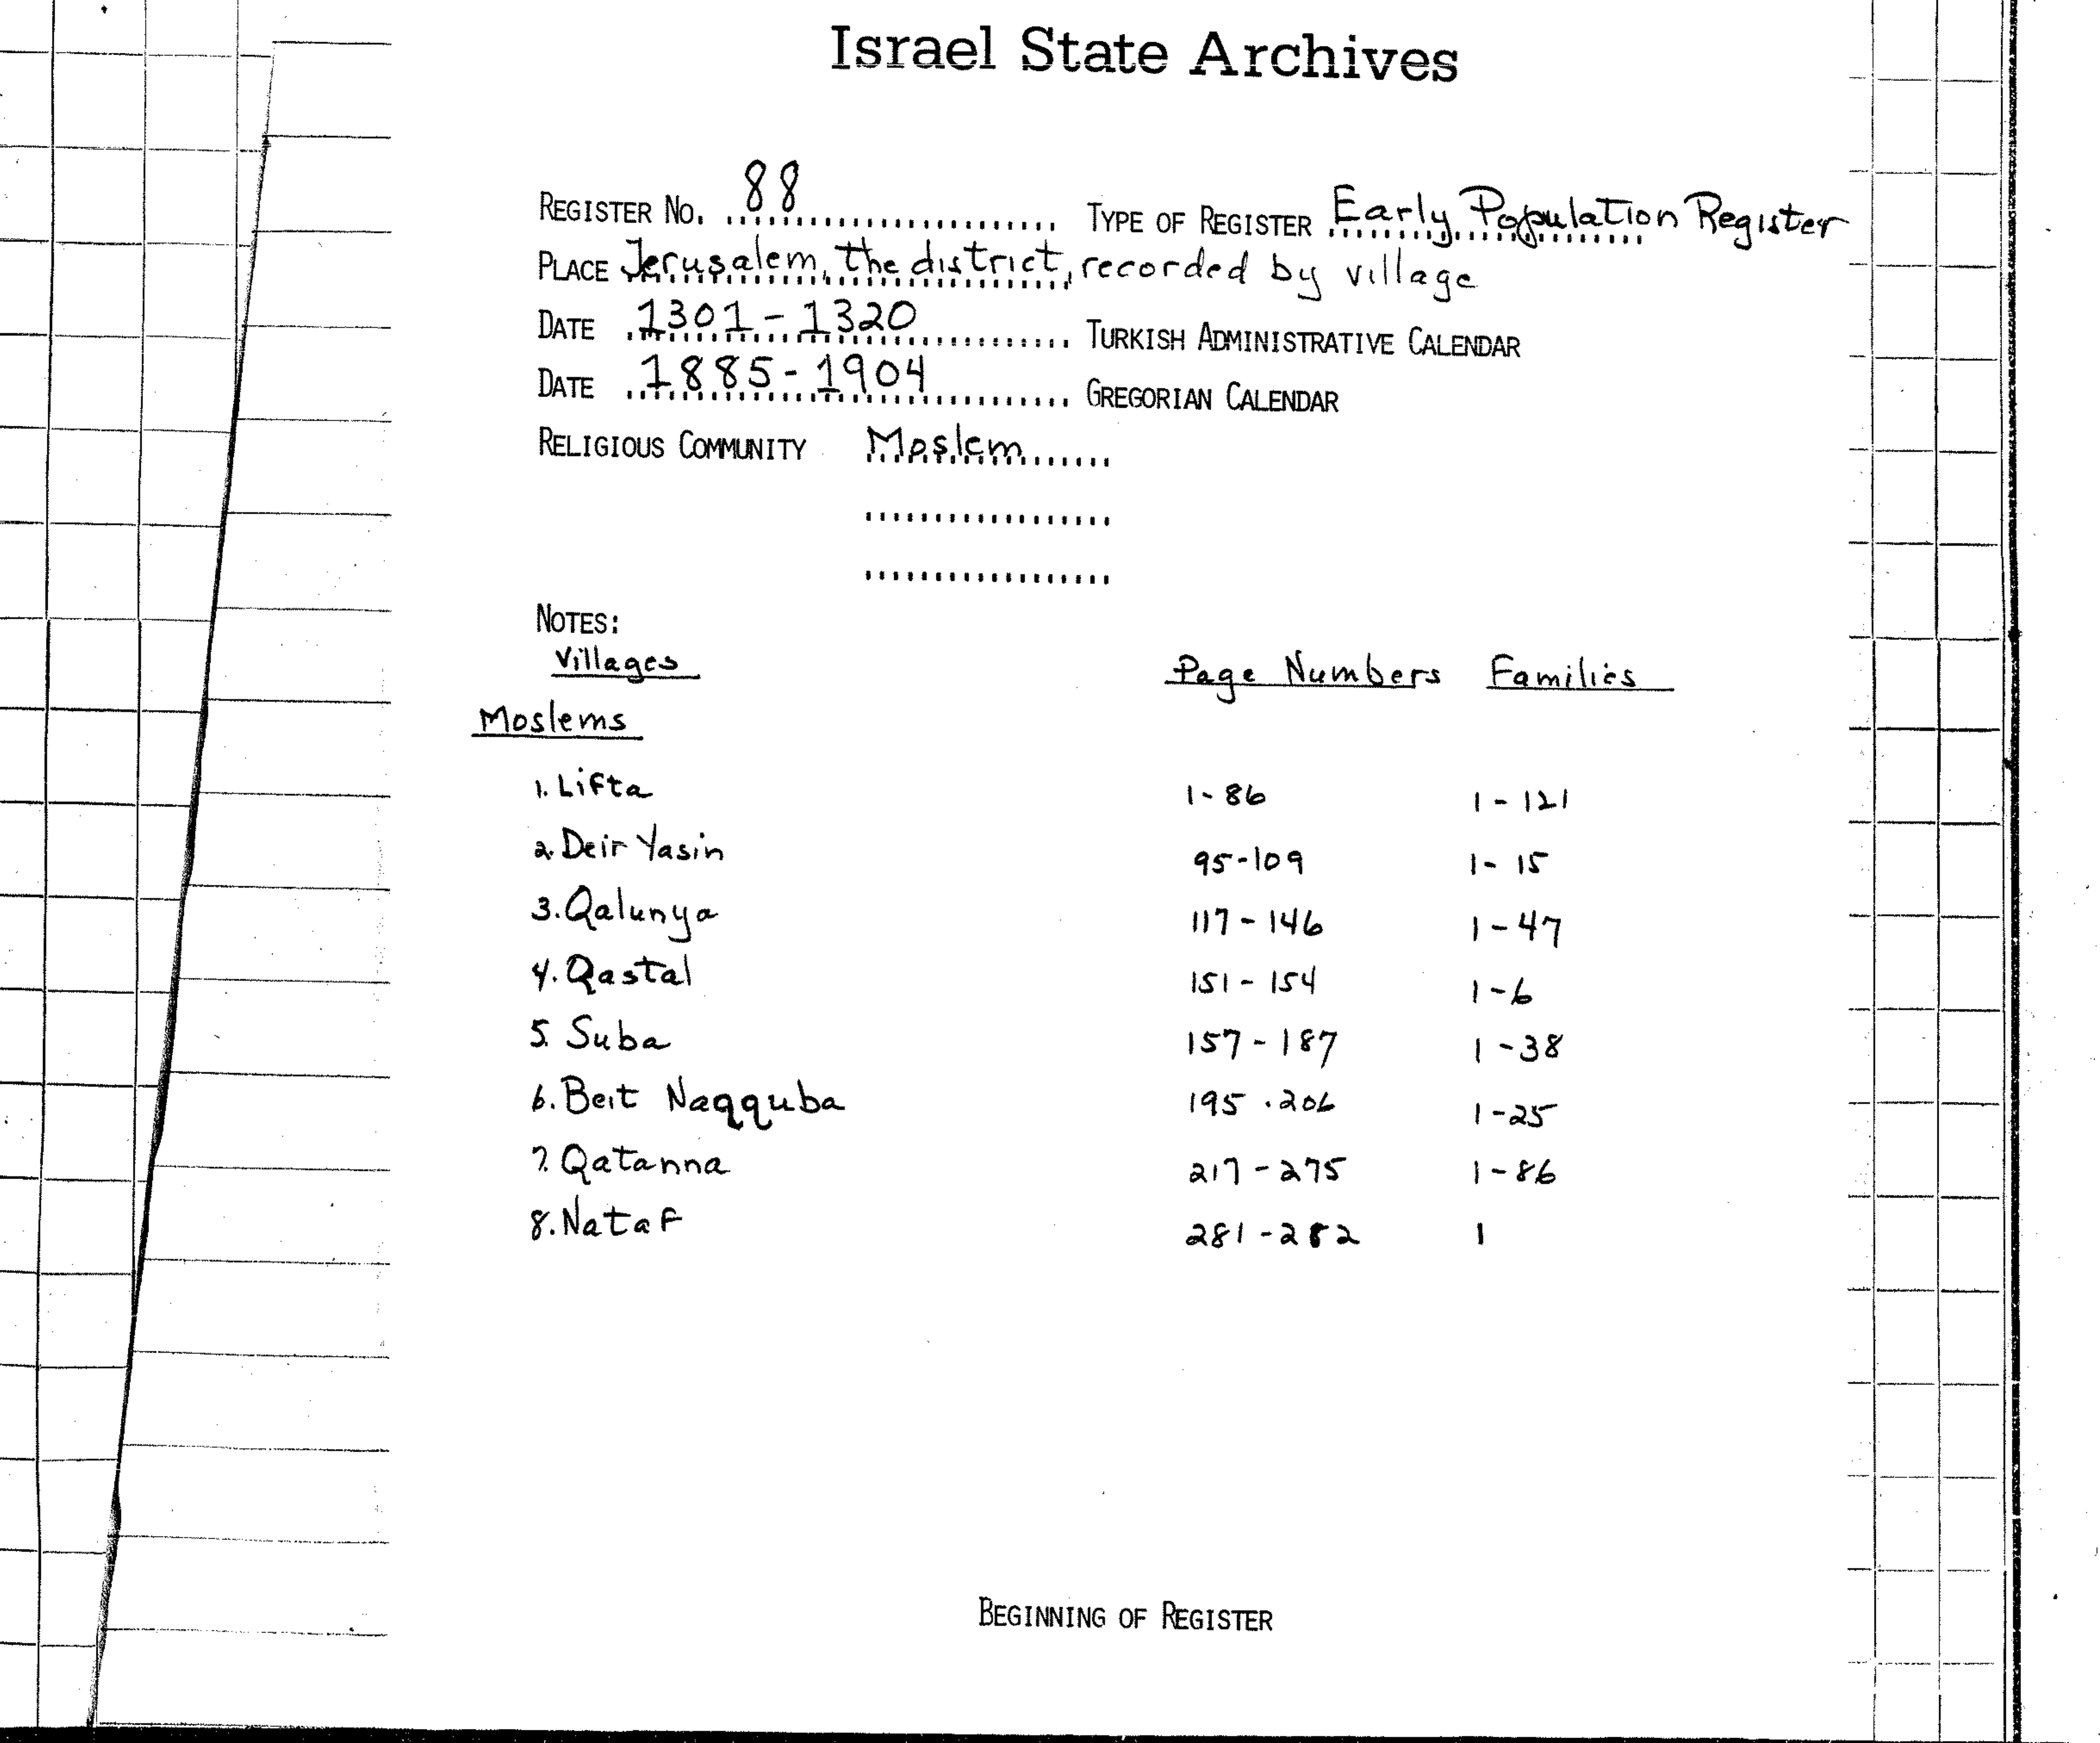 Israel State Archives
REGISTER NO. 88 TYPE OF REGISTER Early Population Register
PLACE Jerusalem, the district, recorded by village
DATE 1301-1320 TURKISH ADMINISTRATIVE CALENDAR
DATE 1885-1904 GREGORIAN CALENDAR
RELIGIOUS COMMUNITY Moslem
NOTES:
Villages Page Numbers Families
Moslems
1. Lifta 1-86 1-121
2. Deir Yasin 95-109 1-15
3. Qalunya 117-146 1-47
4. Qastal 151-154 1-6
5. Suba 157-187 1-38
6. Beit Naqquba 195-206 1-25
7. Qatanna 217-275 1-86
8. Nataf 281-282 1
BEGINNING OF REGISTER